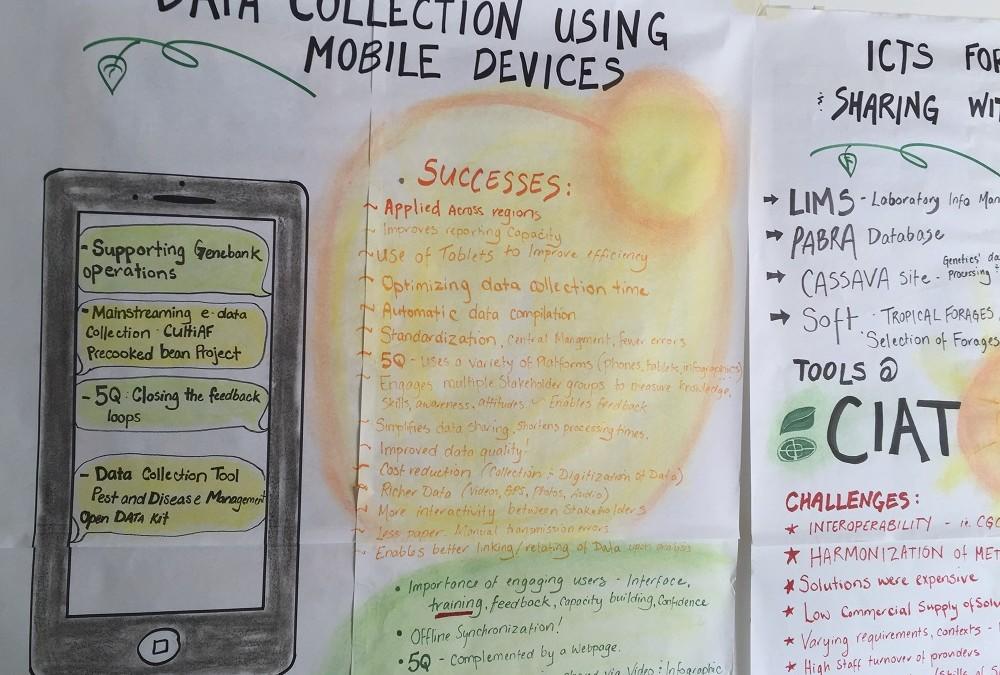 DATA COLLECTION USING
MOBILE DEVICES
- Supporting Genebank
operations
- Mainstreaming e-data
Collection · CultiAF
Precooked bean Project
- 5Q : Closing the feedback
loops
- Data Collection Tool
Pest and Disease Management
Open DATA Kit
• SUCCESSES:
~ Applied Across regions
~ Improves reporting Capacity
~ Use of Tablets to Improve efficiency
~ Optimizing data collection time
~ Automatic data compilation
~ Standardization, Central Mangment, fewer errors
~ 5Q - Uses a variety of Platforms (phones, tablets, infographics)
~ Engages multiple Stakeholder groups to measure knowledge,
skills, awareness, attitudes. Enables feedback
~ Simplifies data sharing, shortens processing times.
~ Improved data quality!
~ Cost reduction (Collection : Digitization of Data)
~ Richer Data (Videos, GPS, Photos, Audio)
~ More interactivity between Stakeholders
~ Less paper. Manual transmission errors
~ Enables better linking/relating of Data upon analysis
• Importance of engaging users - Interface,
training, feedback, capacity building, Confidence
• Offline Synchronization!
• 5Q - Complemented by a webpage.
via Video : Infographic
ICTS FOR
& SHARING WIT
→ LIMS - Laboratory Info Man
→ PABRA Database
→ CASSAVA Site - Genetics' da
Processing
→ Soft · TROPICAL FORAGES
Selection of Forages
TOOLS @
CIAT
CHALLENGES:
★ INTEROPERABILITY - ie. CG
★ HARMONIZATION of MET
★ Solutions were expensive
★ Low Commercial Supply of Solu
★ Varying requirements, contexts -
★ High Staff turnover of providers